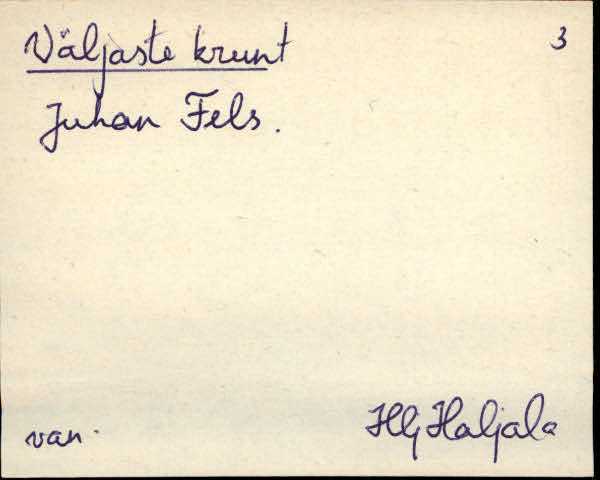 Väljaste krunt 3
Juhan Fels.
van. Hlj Haljala